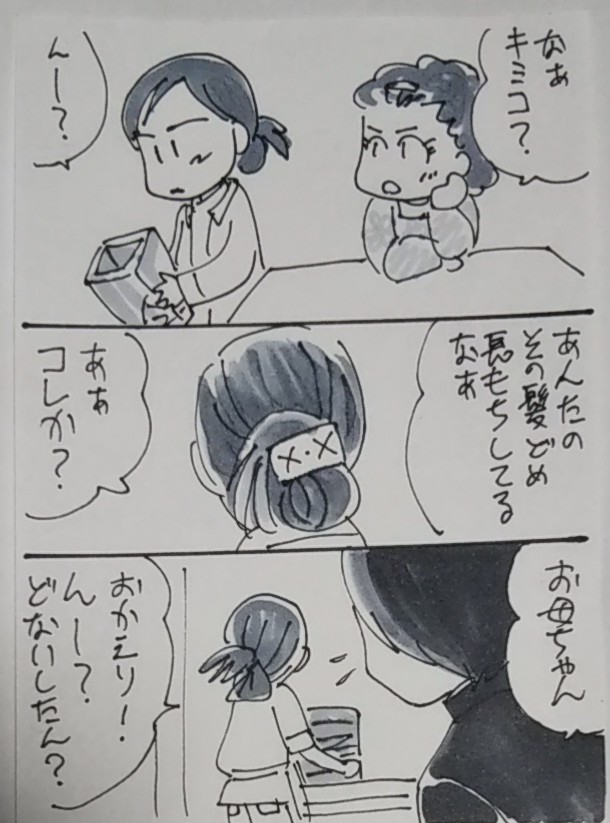 なぁ
キミコ？
んー？
あんたの
その髪どめ
長もちしてる
なぁ
あぁ
コレか？
お母ちゃん
おかえり！
んー？
どないしたん？